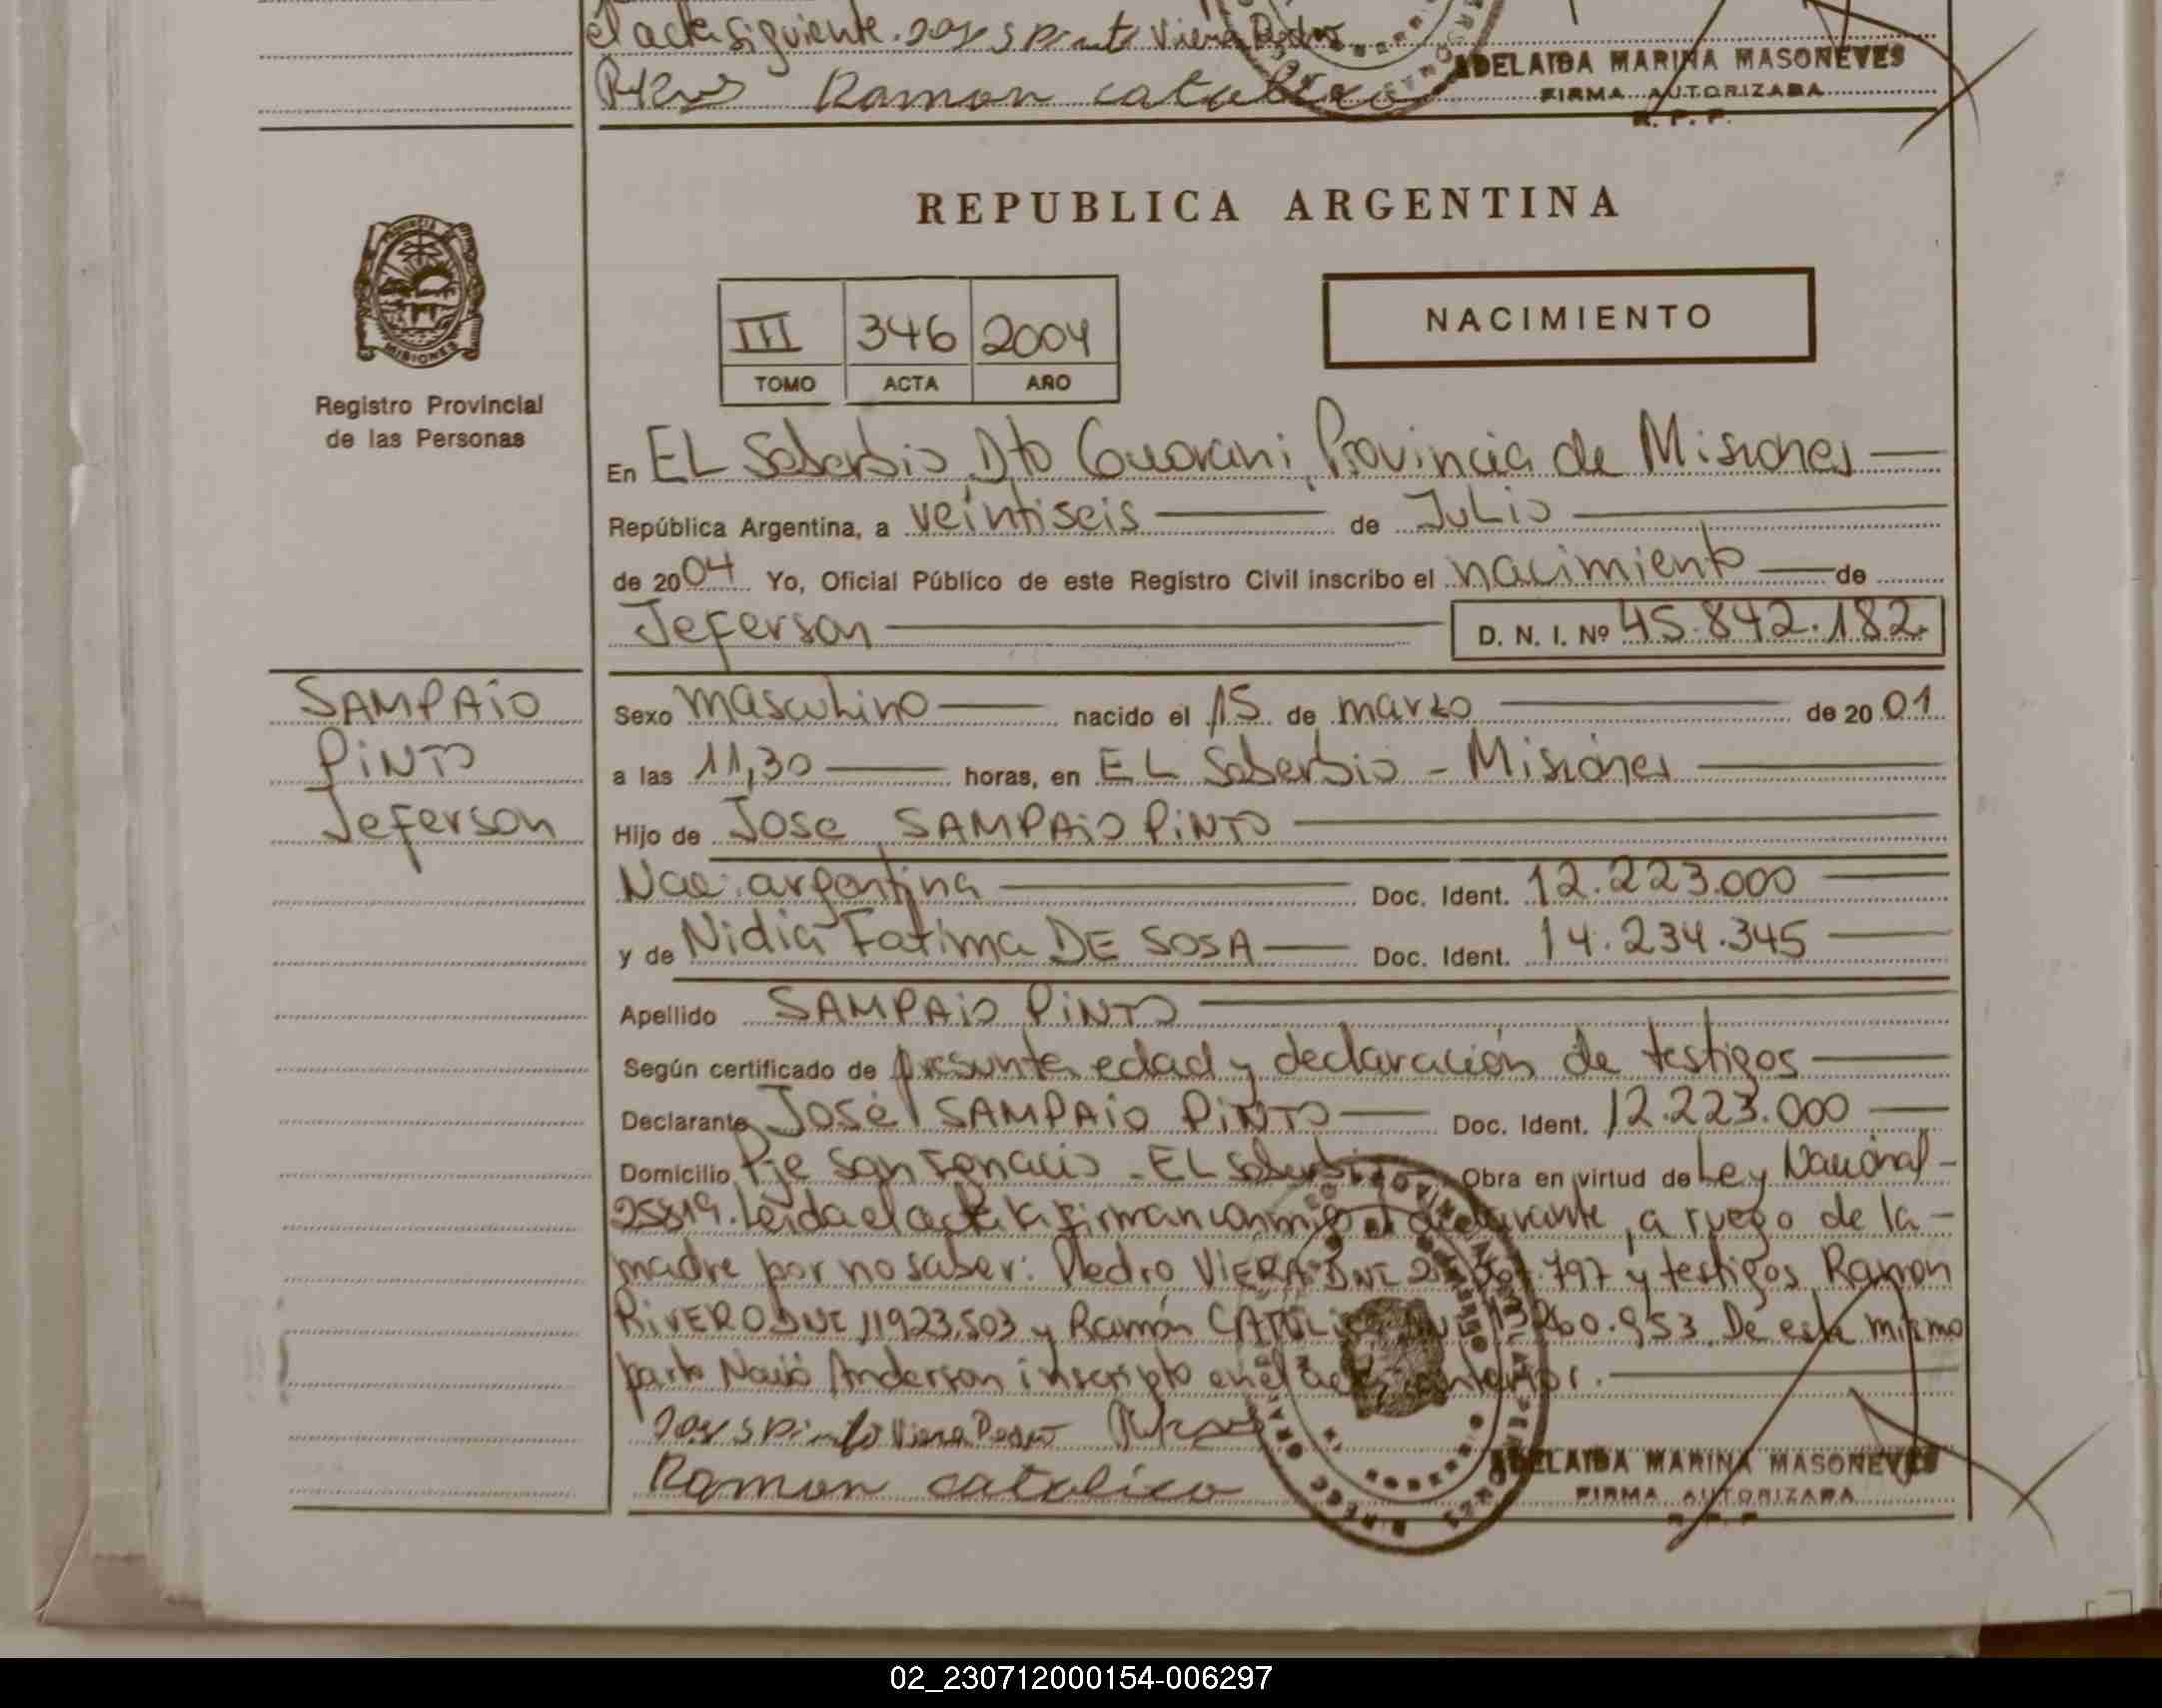 el acta siguiente. Viera Pedro
Ramon catolico
ADELAIDA MARINA MASONEVES
FIRMA AUTORIZADA
R. P. P.
REPUBLICA ARGENTINA
III 346 2004
TOMO ACTA AÑO
NACIMIENTO
MISIONES
Registro Provincial
de las Personas
En EL Soberbio Dto Guarani, Provincia de Misiones
República Argentina, a veintiseis de Julio
de 2004 Yo, Oficial Público de este Registro Civil inscribo el nacimiento de
Jeferson D. N. I. Nº 45.842.182.
SAMPAiO
PiNTO
Jeferson
Sexo masculino nacido el 15 de marzo de 2001
a las 11,30 horas, en EL Soberbio - Misiones
Hijo de Jose SAMPAiO PiNTO
Nac. argentina Doc. Ident. 12.223.000
y de Nidia Fatima DE SOSA Doc. Ident. 14.234.345
Apellido SAMPAiO PiNTO
Según certificado de presunta edad y declaración de testigos
Declarante José SAMPAiO PiNTO Doc. Ident. 12.223.000
Domicilio Pje San Ignacio - EL Soberbio Obra en virtud de Ley Nacional-
25819. Leida el acta la firman conmigo el declarante, a ruego de la-
madre por no saber: Pedro VIERA DNI 797 y testigos Ramon
RiVERO DNI 11923.503 y Ramón CATOLICO DNI 953. De este mismo
parto Nació Anderson inscripto en el acta anterior.
Viera Pedro
Ramon catolico
ADELAIDA MARINA MASONEVES
FIRMA AUTORIZADA
R. P. P.
02_230712000154-006297